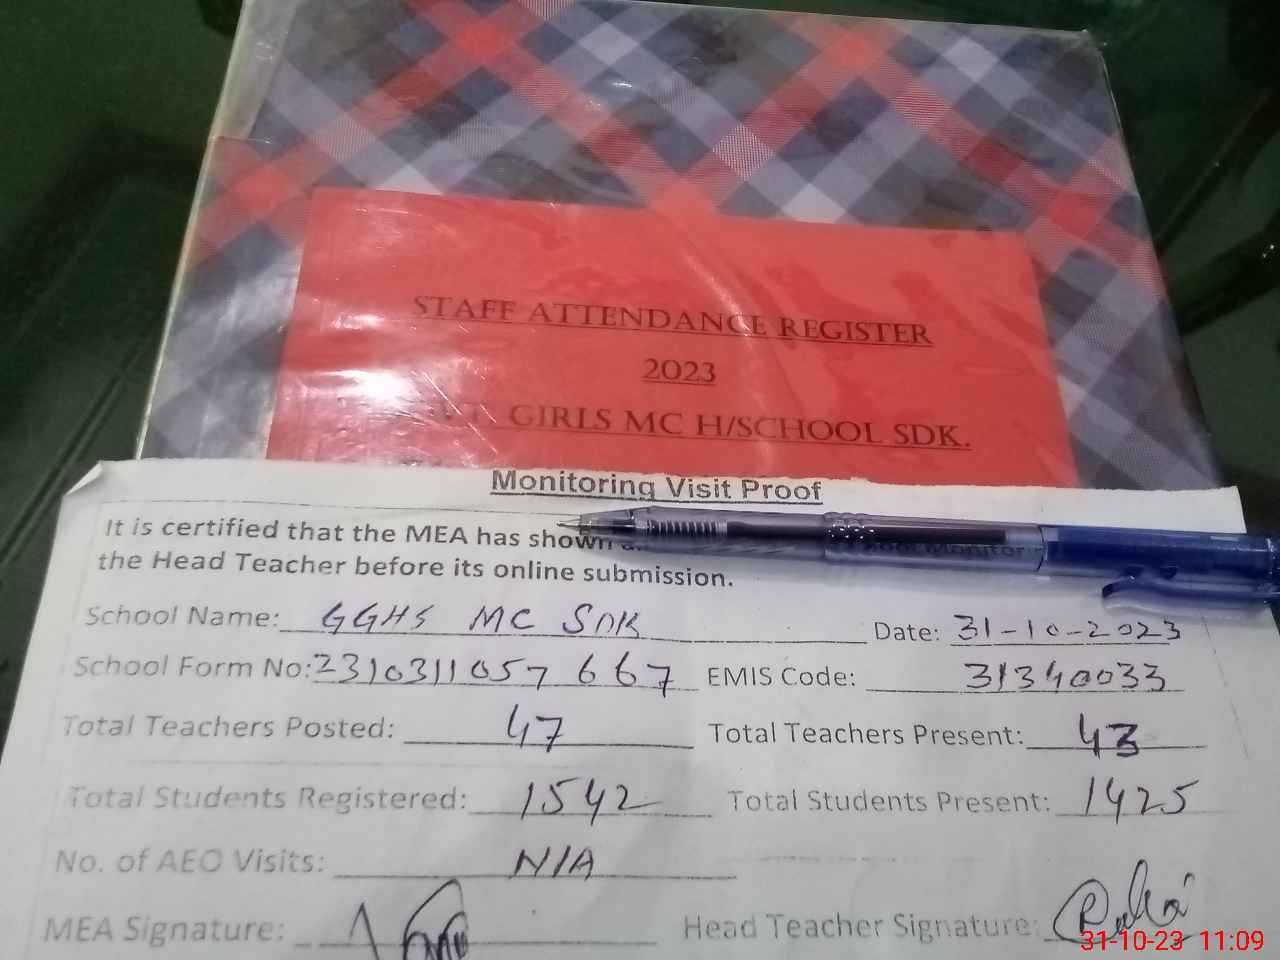 STAFF ATTENDANCE REGISTER
2023
GIRLS MC H/SCHOOL SDK.
Monitoring Visit Proof
It is certified that the MEA has shown
the Head Teacher before its online submission.
School Name: GGHS MC SDK Date: 31-10-2023
School Form No: 2310311057 667 EMIS Code: 31340033
Total Teachers Posted: 47 Total Teachers Present: 43
Total Students Registered: 1542 Total Students Present: 1425
No. of AEO Visits: N/A
MEA Signature: Head Teacher Signature:
31-10-23 11:09